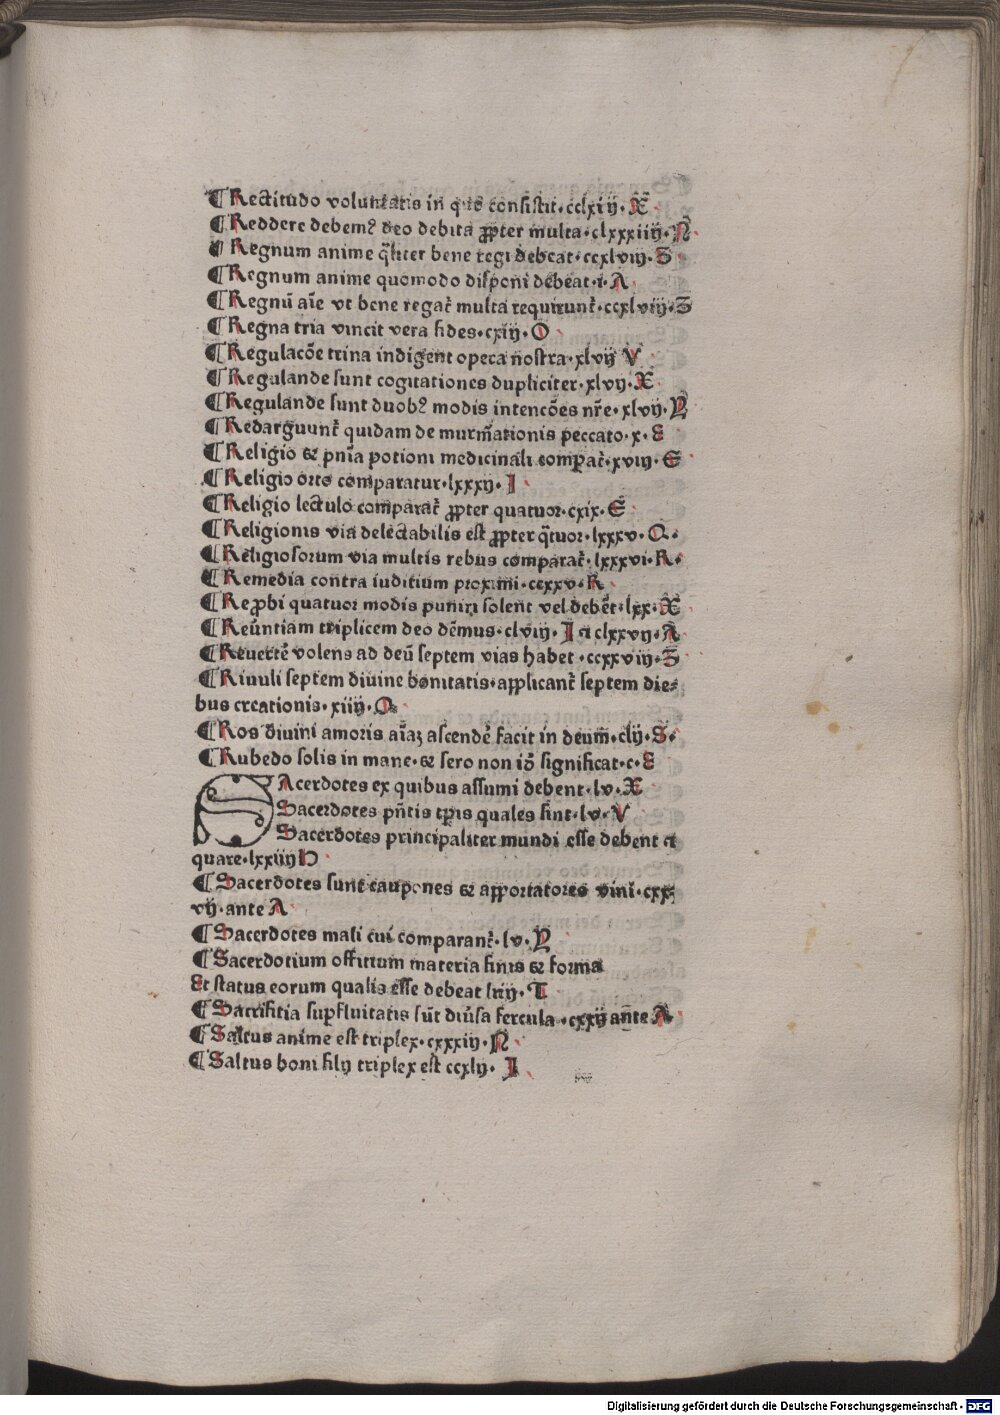 ¶ Rectitudo voluntatis in q̄ consistit·cclxiij·X
¶ Reddere debemꝰ deo debita ꝓpter multa·clxxxiiij·N
¶ Regnum anime q̄liter bene regi debeat·ccxlviij·S
¶ Regnum anime quomodo disponi debeat·i·A
¶ Regnū aīe vt bene regat̄ multa requirunt̄·ccxlviij·Z
¶ Regna tria vincit vera fides·cxiij·O
¶ Regulacōe trina indigent opera nostra·xlvij V
¶ Regulande sunt cogitationes dupliciter·xlvij·X
¶ Regulande sunt duobꝰ modis intencōes nr̄e·xlvij·Y
¶ Redarguunt̄ quidam de murm̄ationis peccato·x·E
¶ Religio ⁊ pn̄ia potioni medicinali comꝑat̄·xviij·E
¶ Religio orto comparatur·lxxxij·I
¶ Religio lectulo comparat̄ ꝓpter quatuor·cxix·E
¶ Religionis via delectabilis est ꝓpter q̄tuor·lxxxv·Q·
¶ Religiosorum via multis rebus comparat̄·lxxxvi·R·
¶ Remedia contra iuditium proximi·ccxxv·R
¶ Reꝓbi quatuor modis puniri solent vel debēt·lxx·X
¶ Reūntiam triplicem deo dēmus·clviij·I et clxxvij·A
¶ Reuertē volens ad deū septem vias habet·ccxxviij·Z
¶ Riuuli septem diuine bonitatis·applicant̄ septem die⸗
bus creationis·xiiij·Q
¶ Ros diuini amoris aīaꝫ ascendē facit in deum̄·clij·S·
¶ Rubedo solis in mane·⁊ sero non iō significat·c·E
SAcerdotes ex quibus assumi debent·lv·X
Sacerdotes pn̄tis tꝑis quales sint·lv·V
Sacerdotes principaliter mundi esse debent et
quare·lxxiiij H
¶ Sacerdotes sunt caupones ⁊ apportatores vini·cxx⸗
vij·ante A
¶ Sacerdotes mali cui comparant̄·lv·Y
¶ Sacerdotium offitium materia finis ⁊ forma
Et status eorum qualis esse debeat liiij·T
¶ Sacrifitia suꝑfluitatis sūt diūsa fercula·cxxij an̄te A
¶ Saltus anime est triplex·cxxxiij·N
¶ Saltus boni filij triplex est ccxlij·I
Digitalisierung gefördert durch die Deutsche Forschungsgemeinschaft · DFG